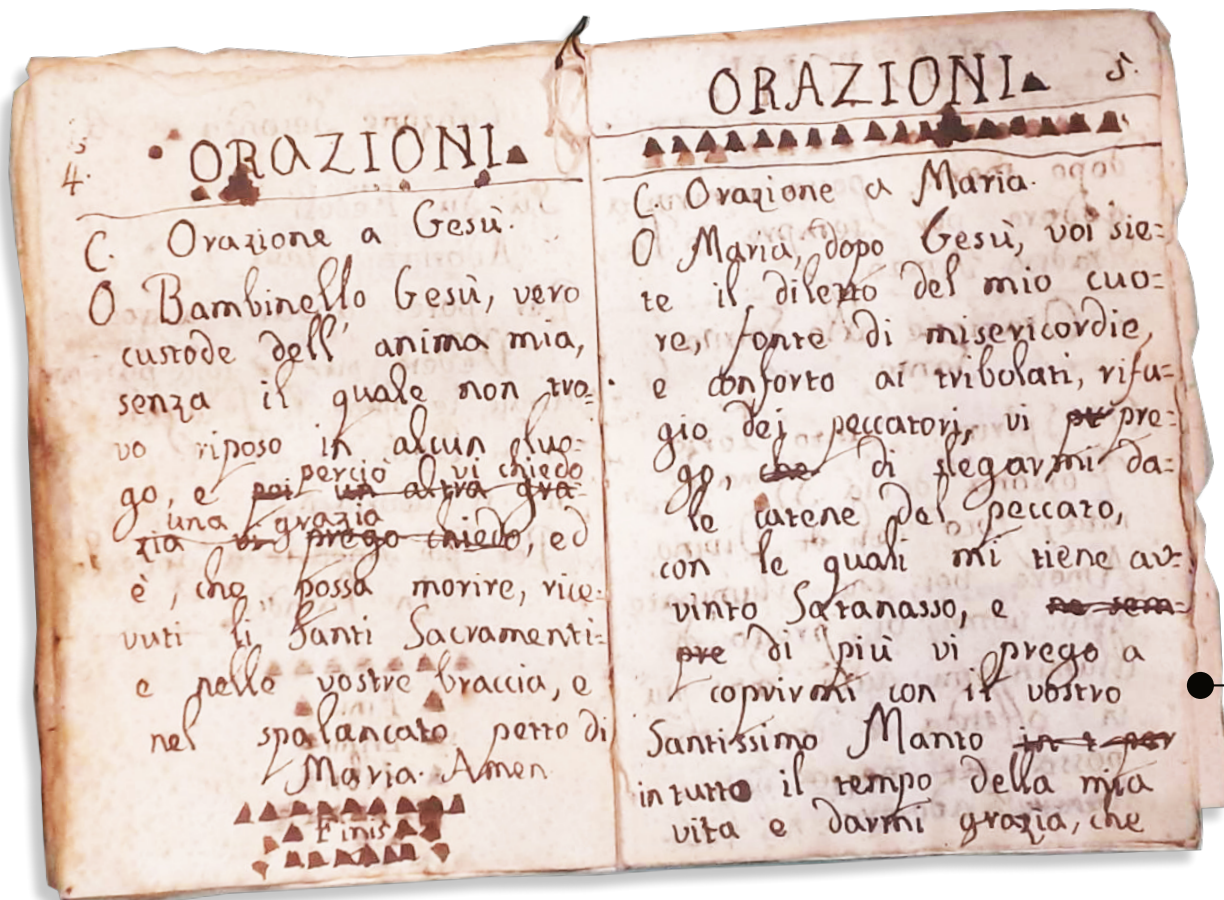 4.
ORAZIONI
C. Orazione a Gesù.
O Bambinello Gesù, vero
custode dell' anima mia,
senza il quale non tro=
vo riposo in alcun luo=
perciò vi chiedo
go, e poi un altra gra=
una grazia
zia vi prego chiedo, ed
è, che possa morire, rice=
vuti li Santi Sacramenti=
e nelle vostre braccia, e
nel spalancato petto di
Maria. Amen
Finis
ORAZIONI 5.
C. Orazione a Maria.
O Maria, dopo Gesù, voi sie=
te il diletto del mio cuo=
re, fonte di misericordie,
e conforto ai tribolati, rifu=
gio dei peccatori, vi pr pre=
go, che di slegarmi da=
le catene del peccato,
con le quali mi tiene av=
vinto Satanasso, e ne sem=
pre di più vi prego a
coprirmi con il vostro
Santissimo Manto in t per
in tutto il tempo della mia
vita e darmi grazia, che